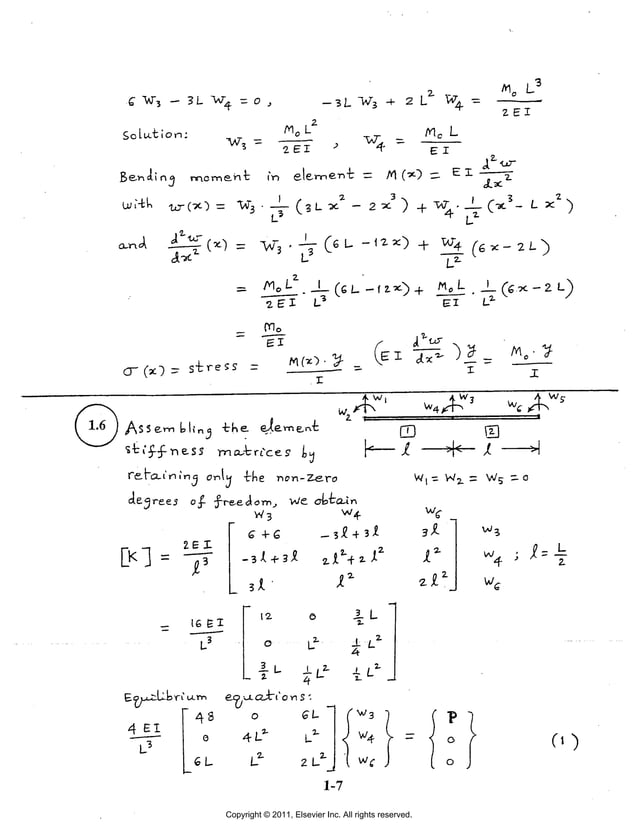 6 W₃ - 3L W₄ = 0 , -3L W₃ + 2 L² W₄ = M₀ L³ / 2 E I
Solution: W₃ = M₀ L² / 2 E I , W₄ = M₀ L / E I
Bending moment in element = M(x) = E I d²w / dx²
with w(x) = W₃ · 1/L³ (3L x² - 2 x³) + W₄ · 1/L² (x³ - L x²)
and d²w/dx² (x) = W₃ · 1/L³ (6L - 12x) + W₄/L² (6x - 2L)
= M₀L²/2EI · 1/L³ (6L - 12x) + M₀L/EI · 1/L² (6x - 2L)
= M₀/EI
σ(x) = stress = M(x)·y / I = (E I d²w/dx²) y/I = M₀·y / I
W₁ W₂ W₄ W₃ W₆ W₅
1.6 Assembling the element
1 2
stiffness matrices by
l l
retaining only the non-zero W₁ = W₂ = W₅ = 0
degrees of freedom, we obtain
W₃ W₄ W₆
[K] = 2EI/l³ [ 6+6 -3l+3l 3l ] W₃
[ -3l+3l 2l²+2l² l² ] W₄ ; l = L/2
[ 3l l² 2l² ] W₆
= 16EI/L³ [ 12 0 3/2 L ]
[ 0 L² 1/4 L² ]
[ 3/2 L 1/4 L² 1/2 L² ]
Equilibrium equations:
4 EI/L³ [ 48 0 6L ] { W₃ } = { P }
[ 0 4L² L² ] { W₄ } { 0 } (1)
[ 6L L² 2L² ] { W₆ } { 0 }
1-7
Copyright © 2011, Elsevier Inc. All rights reserved.